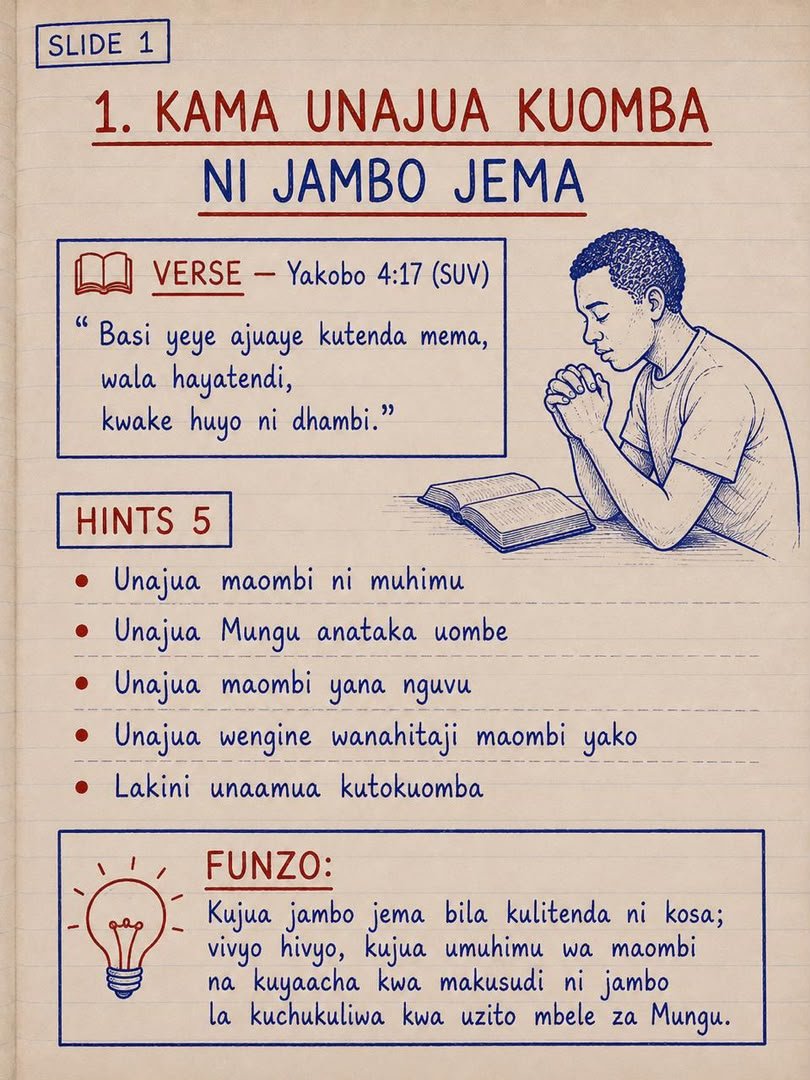 SLIDE 1
1. KAMA UNAJUA KUOMBA
NI JAMBO JEMA
VERSE – Yakobo 4:17 (SUV)
“ Basi yeye ajuaye kutenda mema,
wala hayatendi,
kwake huyo ni dhambi.”
HINTS 5
• Unajua maombi ni muhimu
• Unajua Mungu anataka uombe
• Unajua maombi yana nguvu
• Unajua wengine wanahitaji maombi yako
• Lakini unaamua kutokuomba
FUNZO:
Kujua jambo jema bila kulitenda ni kosa;
vivyo hivyo, kujua umuhimu wa maombi
na kuyaacha kwa makusudi ni jambo
la kuchukuliwa kwa uzito mbele za Mungu.